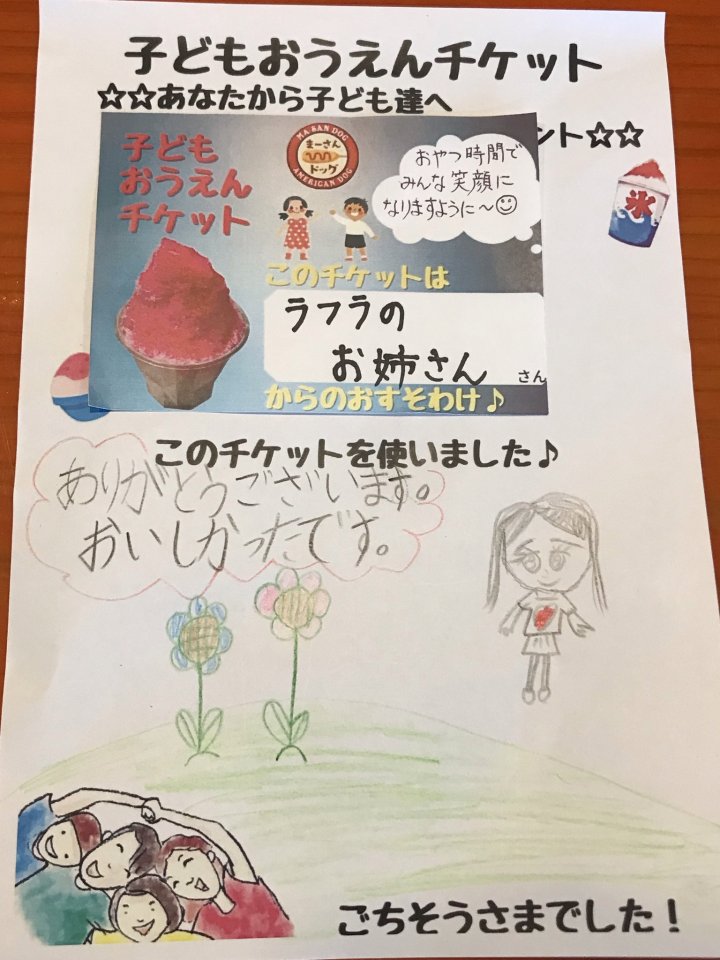 子どもおうえんチケット
☆☆あなたから子ども達へ
ント☆☆
子ども
おうえん
チケット
MA-SAN DOG
まーさん
ドッグ
AMERICAN DOG
おやつ時間で
みんな笑顔に
なりますように〜☺
氷
このチケットは
ラフラの
お姉さん
さん
からのおすそわけ♪
このチケットを使いました♪
ありがとうございます。
おいしかったです。
ごちそうさまでした!